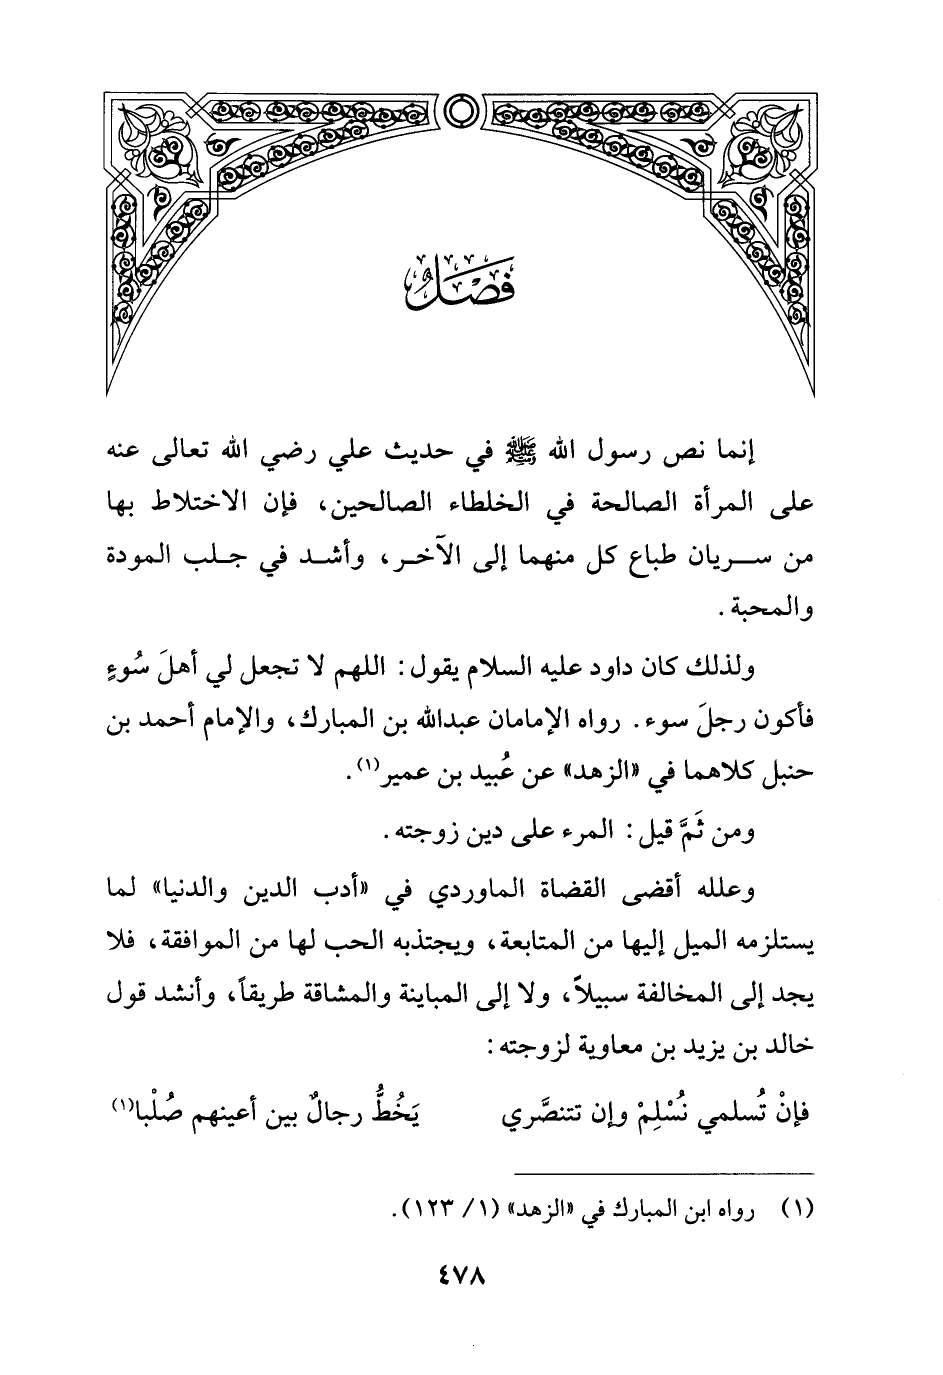 فَصْلٌ
إنما نص رسول الله ﷺ في حديث علي رضي الله تعالى عنه
على المرأة الصالحة في الخلطاء الصالحين، فإن الاختلاط بها
من سريان طباع كل منهما إلى الآخر، وأشد في جلب المودة
والمحبة.
ولذلك كان داود عليه السلام يقول: اللهم لا تجعل لي أهلَ سُوءٍ
فأكون رجلَ سوء. رواه الإمامان عبدالله بن المبارك، والإمام أحمد بن
حنبل كلاهما في «الزهد» عن عُبيد بن عمير(١).
ومن ثَمَّ قيل: المرء على دين زوجته.
وعلله أقضى القضاة الماوردي في «أدب الدين والدنيا» لما
يستلزمه الميل إليها من المتابعة، ويجتذبه الحب لها من الموافقة، فلا
يجد إلى المخالفة سبيلاً، ولا إلى المباينة والمشاقة طريقاً، وأنشد قول
خالد بن يزيد بن معاوية لزوجته:
فإنْ تُسلمي نُسْلِمْ وإن تتنصَّري يَخُطُّ رجالٌ بين أعينهم صُلْبا(١)
(١) رواه ابن المبارك في «الزهد» (١/ ١٢٣).
٤٧٨